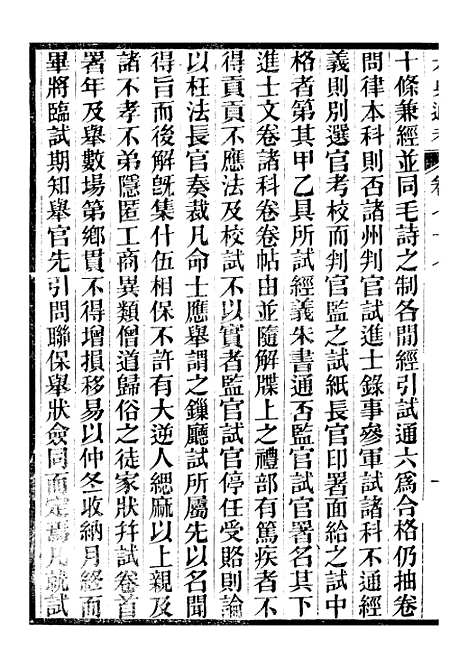 十條兼經並同毛詩之制各間經引試通六爲合格仍抽卷
問律本科則否諸州判官試進士錄事參軍試諸科不通經
義則別選官考校而判官監之試紙長官印署面給之試中
格者第其甲乙具所試經義朱書通否監官試官署名其下
進士文卷諸科卷卷帖由並隨解牒上之禮部有篤疾者不
得貢貢不應法及校試不以實者監官試官停任受賂則論
以枉法長官奏裁凡命士應舉謂之鏁廳試所屬先以名聞
得旨而後解旣集什伍相保不許有大逆人緦麻以上親及
諸不孝不弟隱匿工商異類僧道歸俗之徒家狀幷試卷首
署年及舉數場第鄉貫不得增損移易以仲冬收納月終而
畢將臨試期知舉官先引問聯保舉狀僉同而定焉凡就試